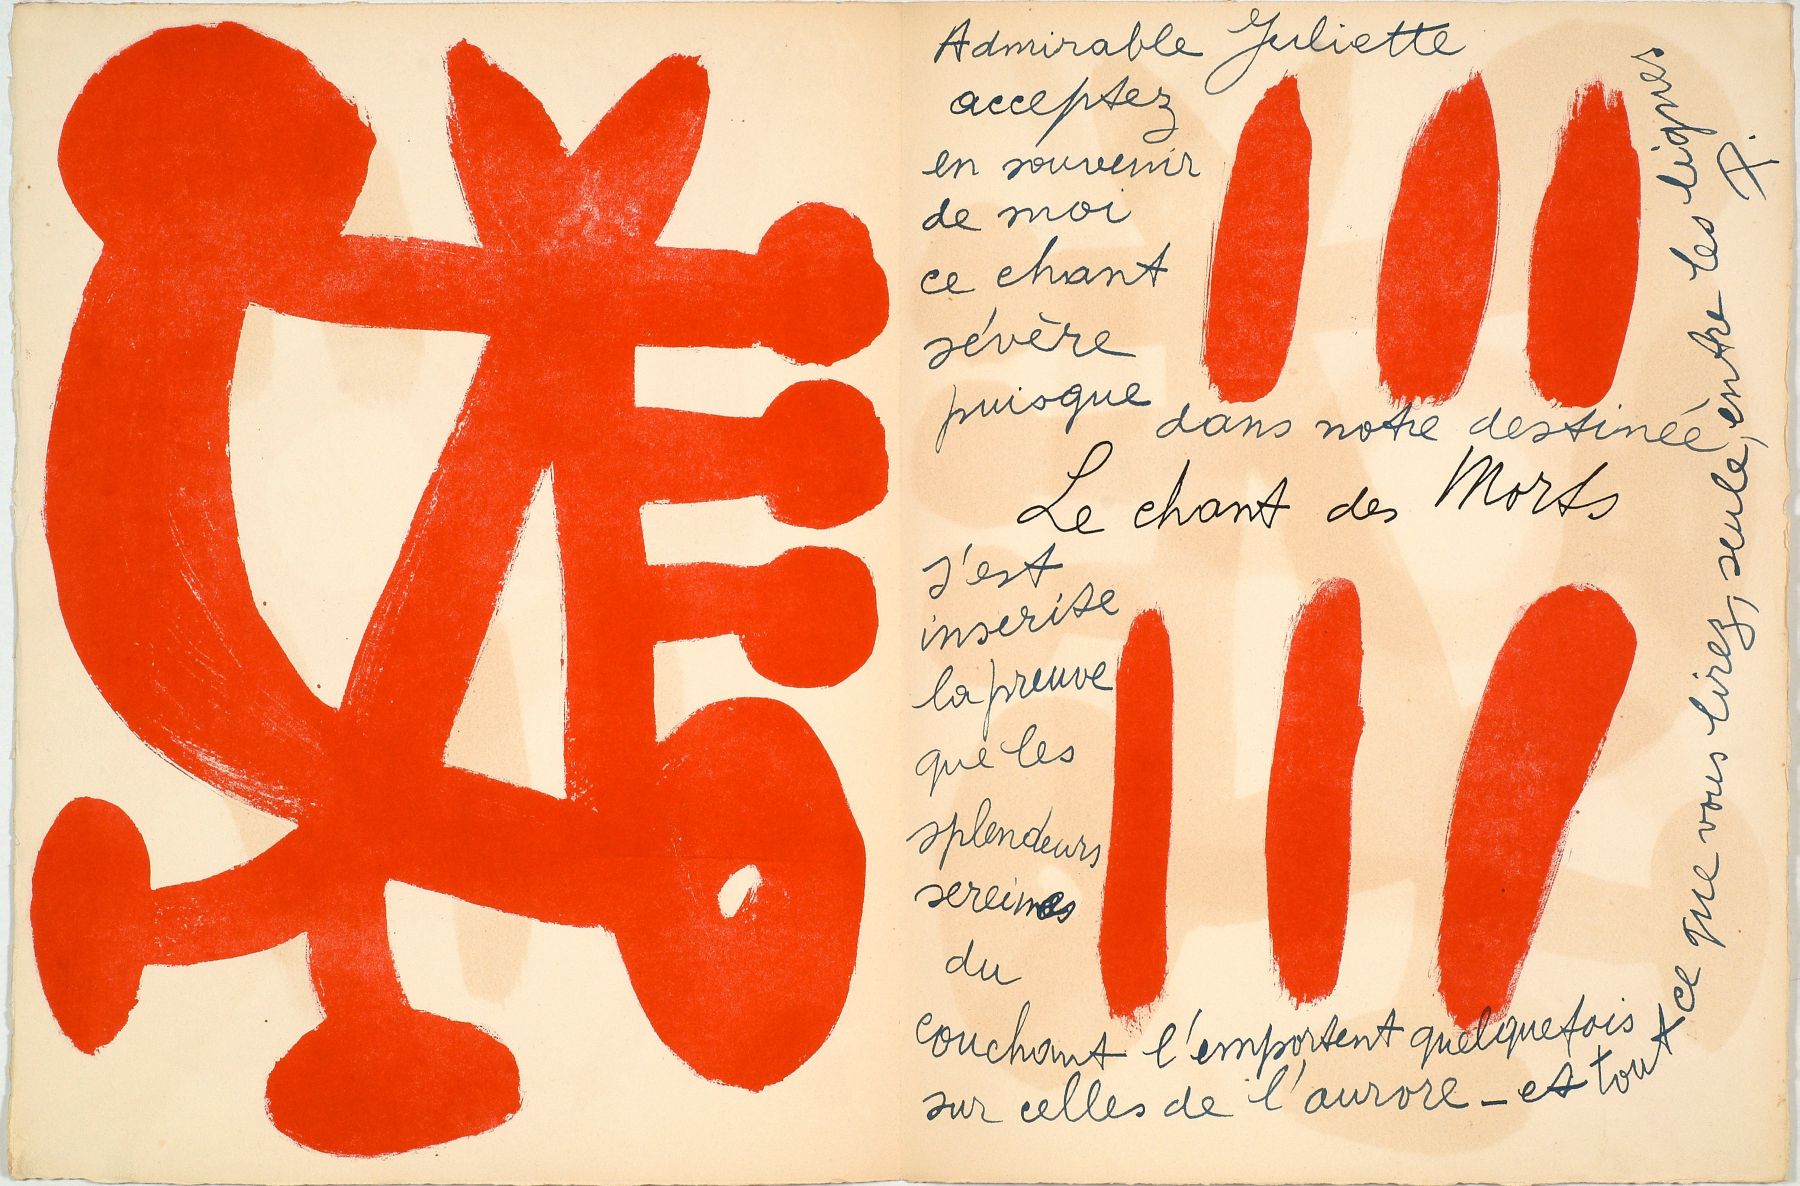 Admirable Juliette
acceptez
en souvenir
de moi
ce chant
sévère
puisque dans notre destinée
Le chant des Morts
s'est
inscrite
la preuve
que les
splendeurs
sereines
du
couchant l'emportent quelquefois
sur celles de l'aurore – et tout ce que vous lirez, seule, entre les lignes
P.